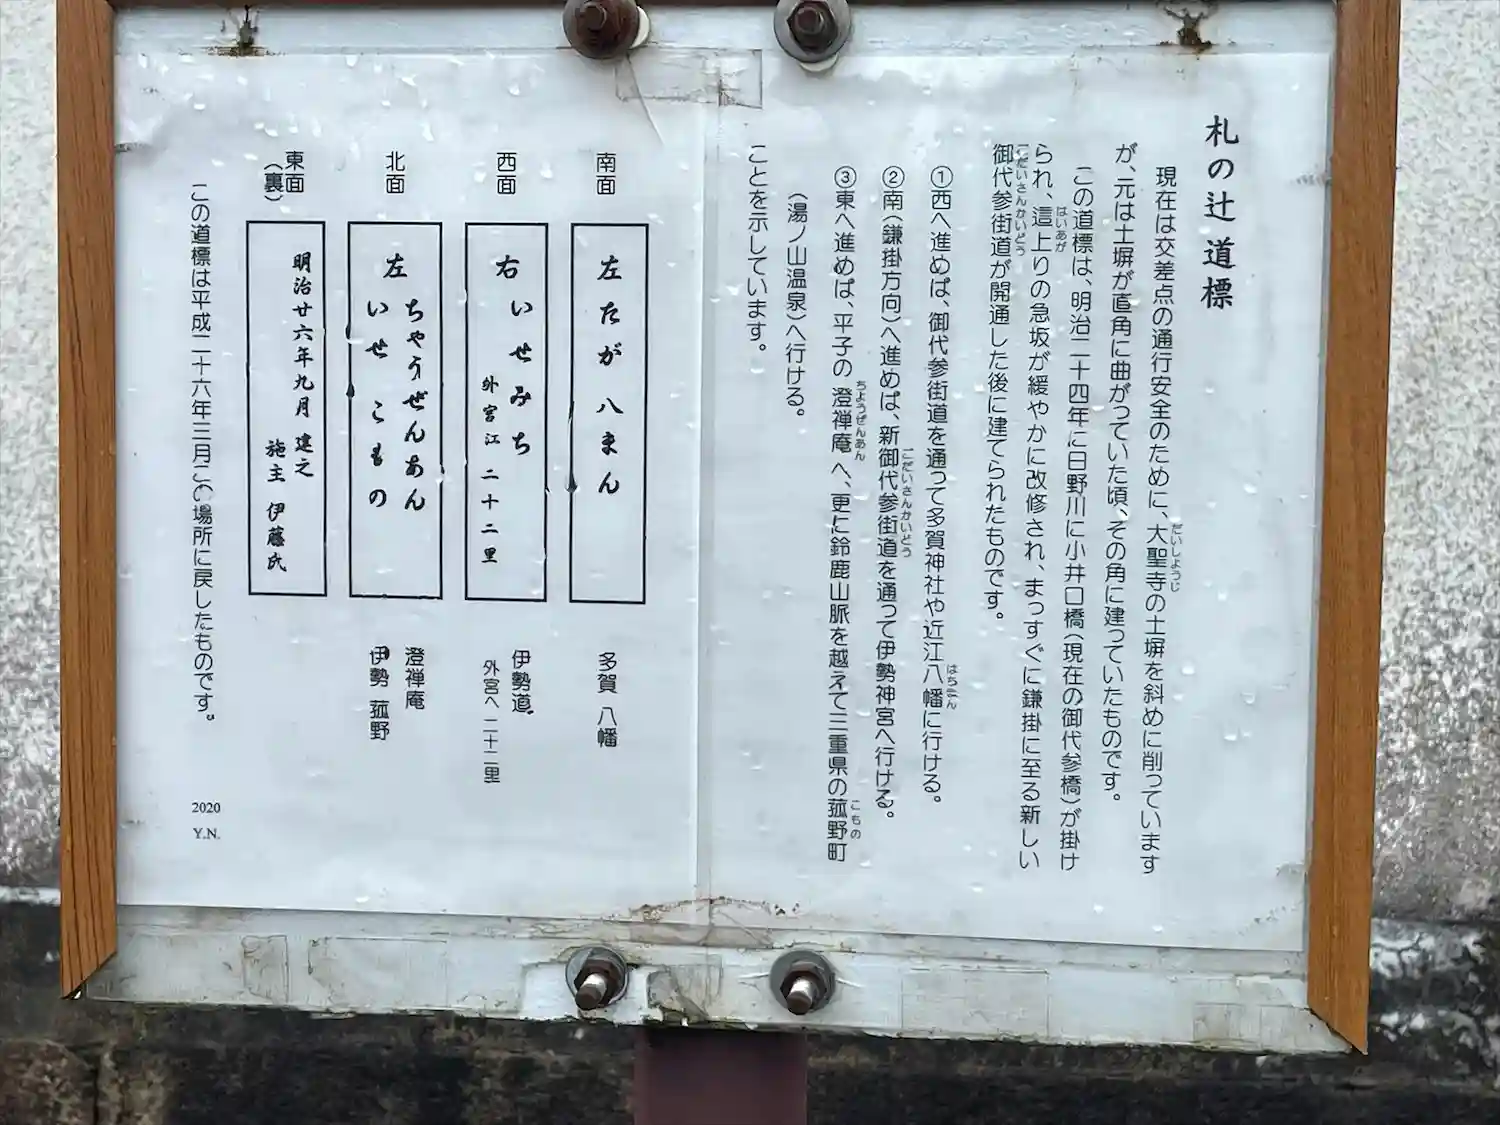 札の辻 道標
現在は交差点の通行安全のために、大聖寺の土塀を斜めに削っています
だいしょうじ
が、元は土塀が直角に曲がっていた頃、その角に建っていたものです。
この道標は、明治二十四年に日野川に小井口橋(現在の御代参橋)が掛け
られ、這上りの急坂が緩やかに改修され、まっすぐに鎌掛に至る新しい
はいあが
御代参街道が開通した後に建てられたものです。
ごだいさんかいどう
①西へ進めば、御代参街道を通って多賀神社や近江八幡に行ける。
はちまん
②南(鎌掛方向)へ進めば、新御代参街道を通って伊勢神宮へ行ける。
ごだいさんかいどう
③東へ進めば、平子の澄禅庵へ、更に鈴鹿山脈を越えて三重県の菰野町
ちょうぜんあん
こもの
(湯ノ山温泉)へ行ける。
ことを示しています。
南面
左 たが 八まん
多賀 八幡
西面
右 いせみち
外宮江 二十二里
伊勢道
外宮へ 二十二里
北面
左 ちゃうぜんあん
いせ こもの
澄禅庵
伊勢 菰野
東面
(裏)
明治廿六年九月 建之
施主 伊藤氏
この道標は平成二十六年三月この場所に戻したものです。
2020
Y.N.